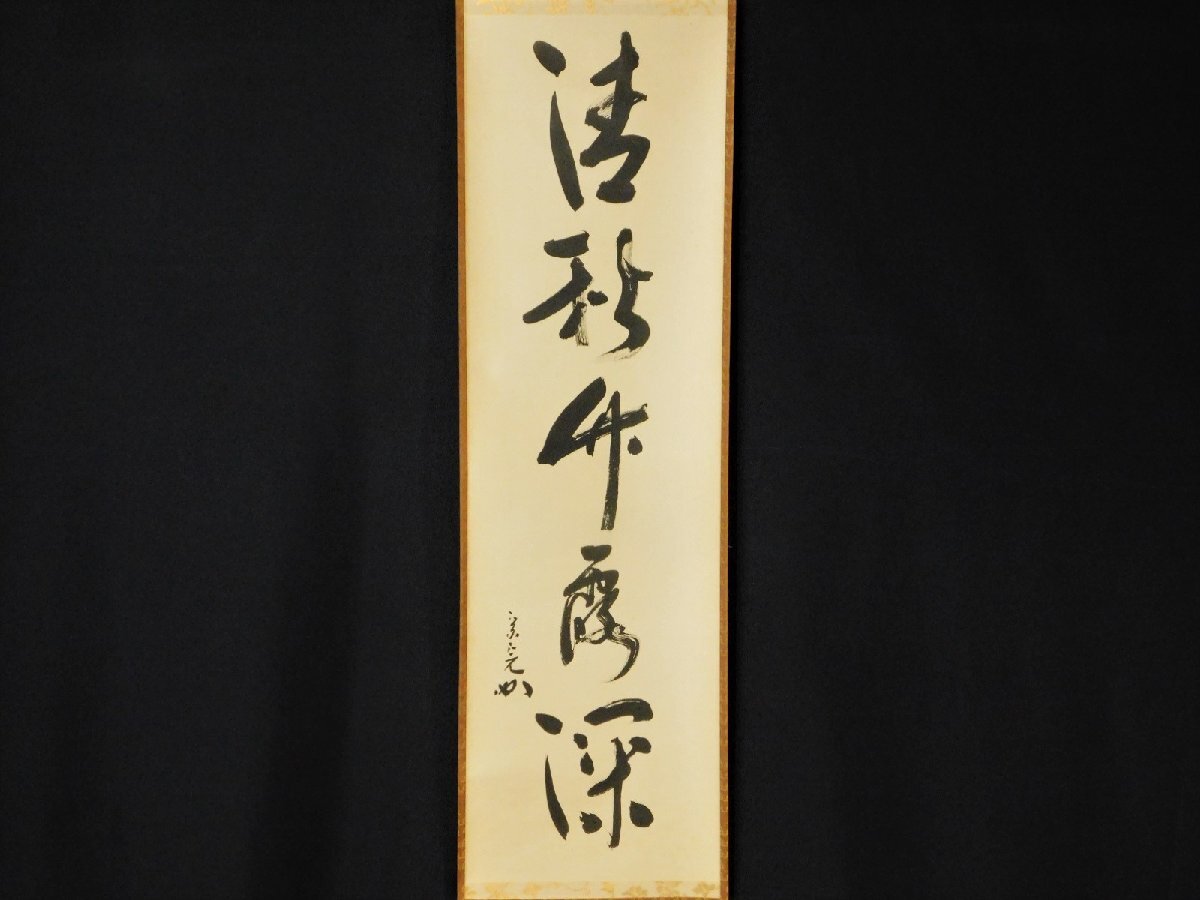 清秋竹露深